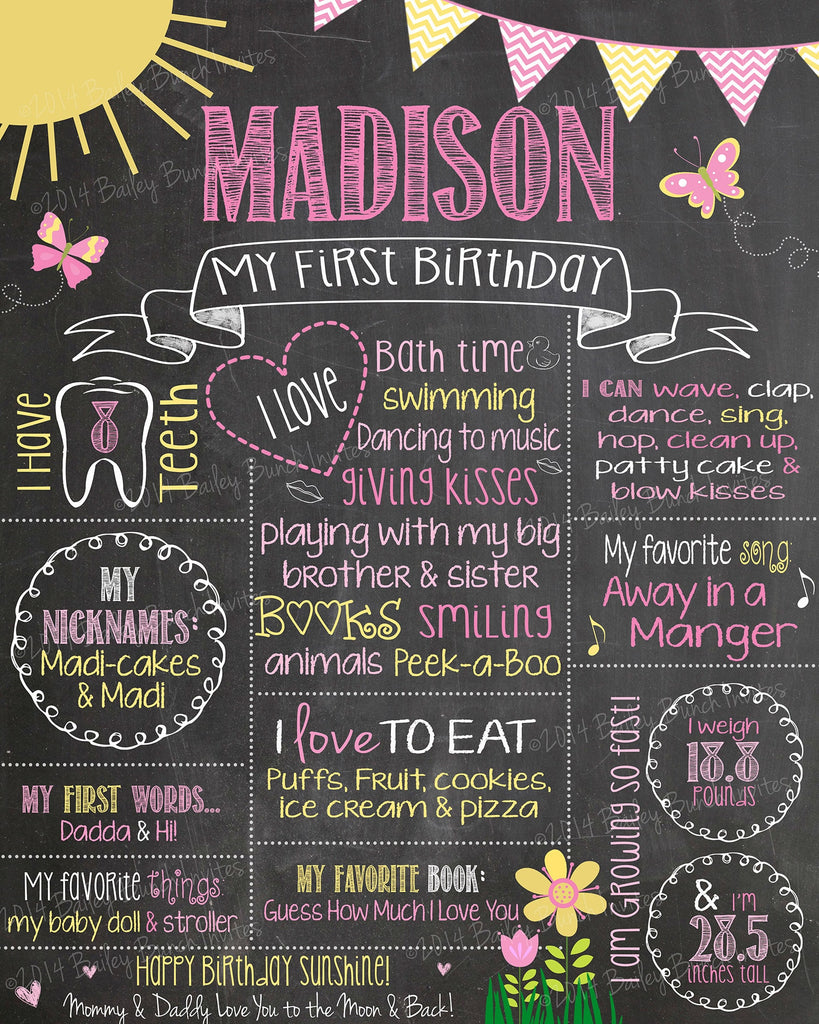 MADISON
MY FIRST BIRTHDAY
I Have
8
Teeth
I LOVE
Bath time
swimming
Dancing to music
giving kisses
playing with my big
brother & sister
BOOKS smiling
animals Peek-a-Boo
I CAN wave, clap,
dance, sing,
hop, clean up,
patty cake &
blow kisses
MY
NICKNAMES:
Madi-cakes
& Madi
My favorite song:
Away in a
Manger
I love TO EAT
Puffs, Fruit, cookies,
ice cream & pizza
MY FIRST WORDS...
Dadda & Hi!
My favorite things:
my baby doll & stroller
MY FAVORITE BOOK:
Guess How Much I Love You
I am GROWING so fast!
I weigh
18.8
POUNDS
& I'm
28.5
inches tall
Happy Birthday Sunshine!
Mommy & Daddy Love You to the Moon & Back!
©2014 Bailey Bunch Invites